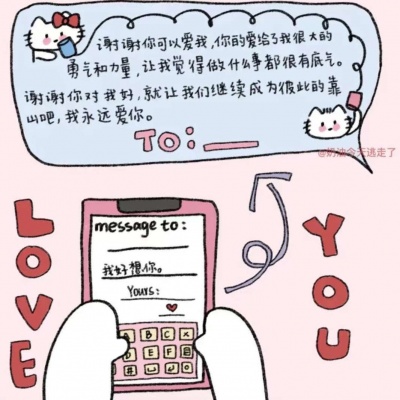 谢谢你可以爱我,你的爱给了我很大的
勇气和力量,让我觉得做什么事都很有底气。
谢谢你对我好,就让我们继续成为彼此的靠
山吧,我永远爱你。
TO:
@奶油今天逃走了
LOVE
YOU
message to:
我好想你。
Yours:
A B C X
D E F